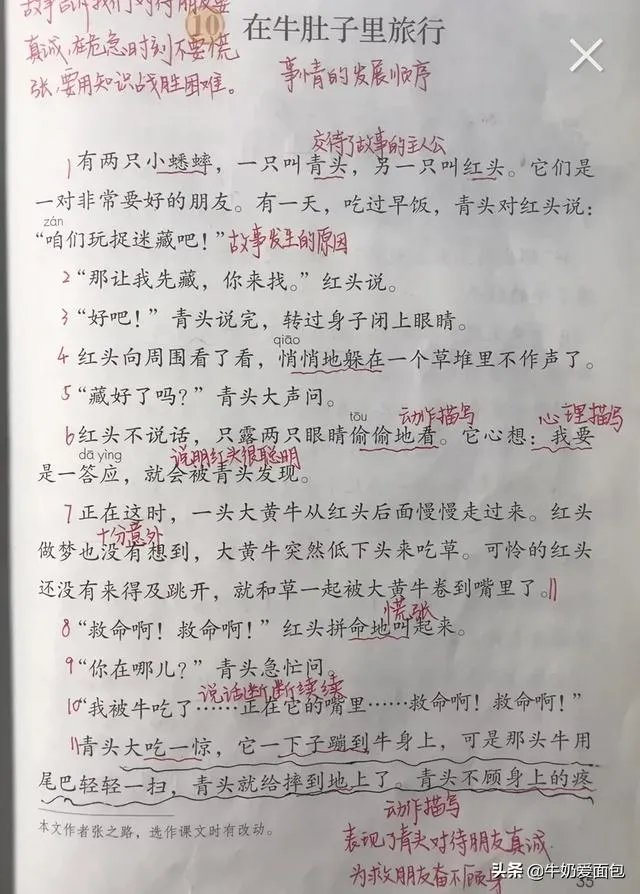 故事告诉我们对待朋友要
真诚,在危急时刻不要慌
张,要用知识战胜困难。
10 在牛肚子里旅行
事情的发展顺序
交待了故事的主人公
1 有两只小蟋蟀，一只叫青头，另一只叫红头。它们是
一对非常要好的朋友。有一天，吃过早饭，青头对红头说：
zán
“咱们玩捉迷藏吧！” 故事发生的原因
2 “那让我先藏，你来找。”红头说。
3 “好吧！”青头说完，转过身子闭上眼睛。
qiāo
4 红头向周围看了看，悄悄地躲在一个草堆里不作声了。
5 “藏好了吗？”青头大声问。
tōu 动作描写 心理描写
6 红头不说话，只露两只眼睛偷偷地看。它心想：我要
dā yìng 说明红头很聪明
是一答应，就会被青头发现。
7 正在这时，一头大黄牛从红头后面慢慢走过来。红头
十分意外
做梦也没有想到，大黄牛突然低下头来吃草。可怜的红头
还没有来得及跳开，就和草一起被大黄牛卷到嘴里了。||
慌张
8 “救命啊！救命啊！”红头拼命地叫起来。
9 “你在哪儿？”青头急忙问。
说话断断续续
10 “我被牛吃了……正在它的嘴里……救命啊！救命啊！”
11 青头大吃一惊，它一下子蹦到牛身上，可是那头牛用
尾巴轻轻一扫，青头就给摔到地上了。青头不顾身上的疼
本文作者张之路，选作课文时有改动。
动作描写
表现了青头对待朋友真诚
为救朋友奋不顾身
头条 @牛奶爱面包
35